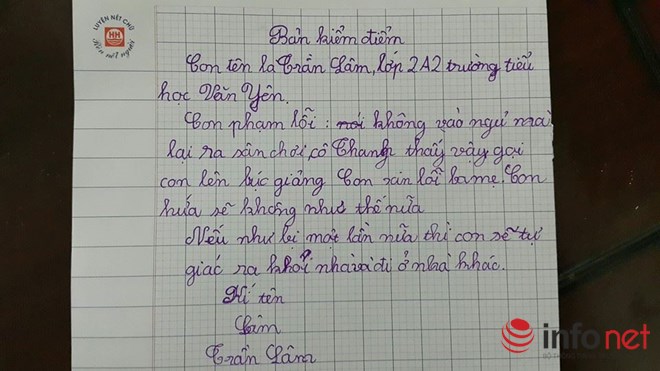 LUYỆN NÉT CHỮ
HH
Rèn nết người
Bản kiểm điểm
Con tên là Trần Lâm, lớp 2A2 trường tiểu
học Văn Yên.
Con phạm lỗi : nói không vào ngủ mà
lại ra sân chơi cô Thanh thấy vậy gọi
con lên bục giảng Con xin lỗi ba mẹ. Con
hứa sẽ không như thế nữa
Nếu như bị một lần nữa thì con sẽ tự
giác ra khỏi nhà và đi ở nhà khác.
Kí tên
Lâm
Trần Lâm
infonet